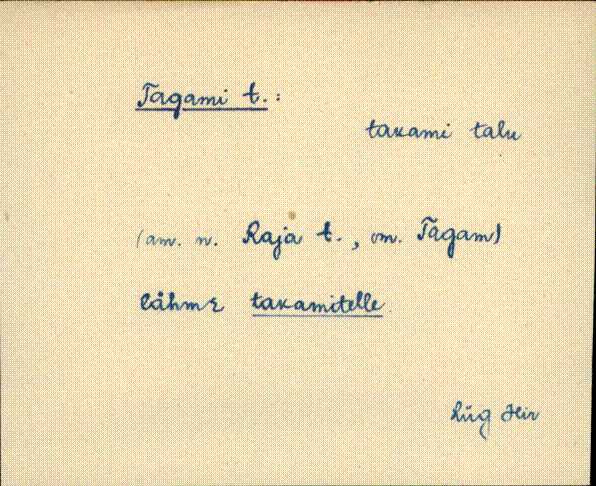 Tagami t.:
taxami talu
(am. n. Raja t., om. Tagam)
lähme taxamitelle
Lüg Heir